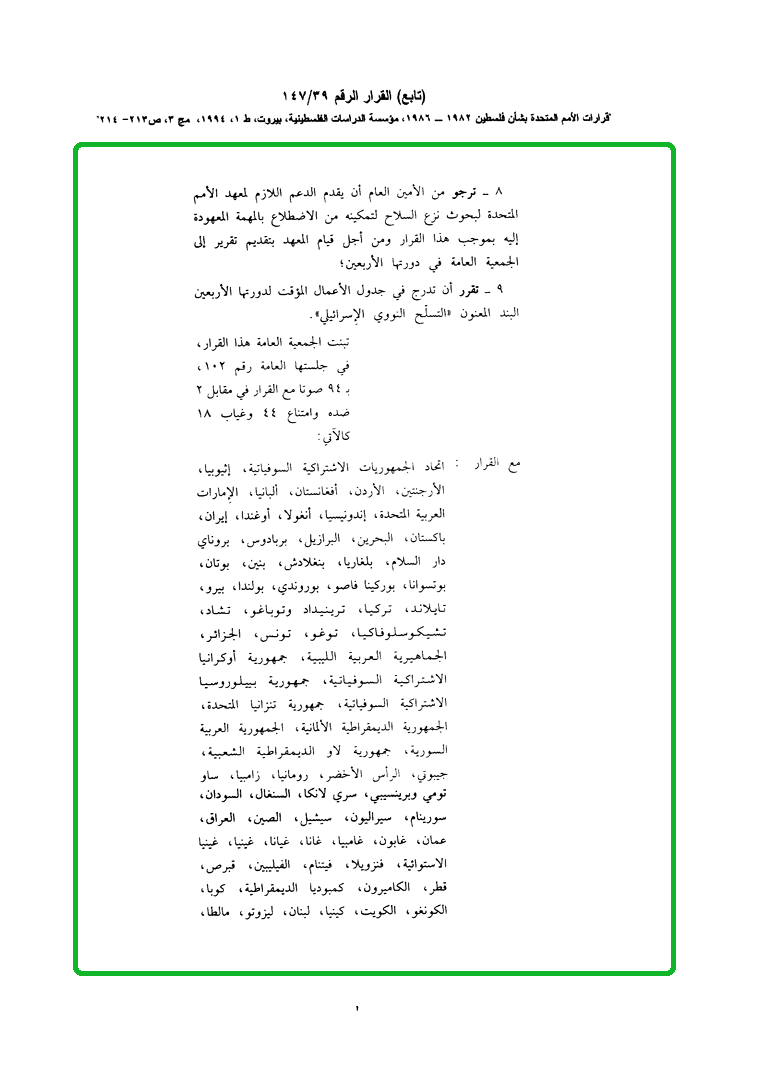 (تابع) القرار الرقم ١٤٧/٣٩
"قرارات الأمم المتحدة بشأن فلسطين ١٩٨٢ ــ ١٩٨٦، مؤسسة الدراسات الفلسطينية، بيروت، ط ١، ١٩٩٤، مج ٣، ص٢١٣- ٢١٤"
٨ ــ ترجو من الأمين العام أن يقدم الدعم اللازم لمعهد الأمم
المتحدة لبحوث نزع السلاح لتمكينه من الاضطلاع بالمهمة المعهودة
إليه بموجب هذا القرار ومن أجل قيام المعهد بتقديم تقرير إلى
الجمعية العامة في دورتها الأربعين؛
٩ ــ تقرر أن تدرج في جدول الأعمال المؤقت لدورتها الأربعين
البند المعنون «التسلّح النووي الإسرائيلي».
تبنت الجمعية العامة هذا القرار،
في جلستها العامة رقم ١٠٢،
بـ ٩٤ صوتا مع القرار في مقابل ٢
ضده وامتناع ٤٤ وغياب ١٨
كالآتي:
مع القرار : اتحاد الجمهوريات الاشتراكية السوفياتية، إثيوبيا،
الأرجنتين، الأردن، أفغانستان، ألبانيا، الإمارات
العربية المتحدة، إندونيسيا، أنغولا، أوغندا، إيران،
باكستان، البحرين، البرازيل، بربادوس، بروناي
دار السلام، بلغاريا، بنغلادش، بنين، بوتان،
بوتسوانا، بوركينا فاصو، بوروندي، بولندا، بيرو،
تايلاند، تركيا، ترينيداد وتوباغو، تشاد،
تشيكوسلوفاكيا، توغو، تونس، الجزائر،
الجماهيرية العربية الليبية، جمهورية أوكرانيا
الاشتراكية السوفياتية، جمهورية بييلوروسيا
الاشتراكية السوفياتية، جمهورية تنزانيا المتحدة،
الجمهورية الديمقراطية الألمانية، الجمهورية العربية
السورية، جمهورية لاو الديمقراطية الشعبية،
جيبوتي، الرأس الأخضر، رومانيا، زامبيا، ساو
تومي وبرينسيبي، سري لانكا، السنغال، السودان،
سورينام، سيراليون، سيشيل، الصين، العراق،
عمان، غابون، غامبيا، غانا، غيانا، غينيا، غينيا
الاستوائية، فنزويلا، فيتنام، الفيليبين، قبرص،
قطر، الكاميرون، كمبوديا الديمقراطية، كوبا،
الكونغو، الكويت، كينيا، لبنان، ليزوتو، مالطا،
١